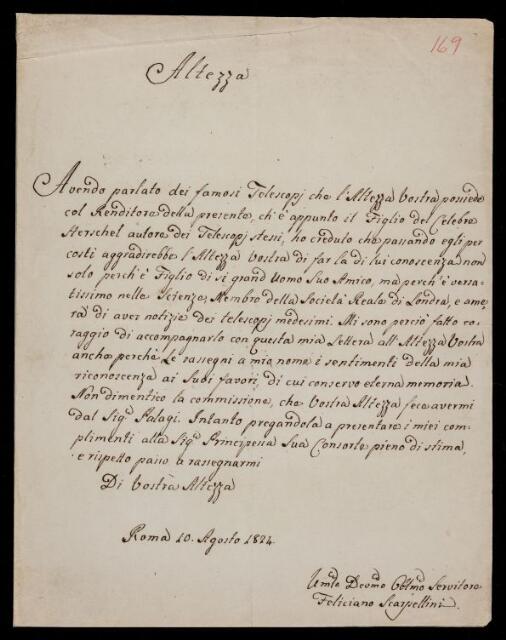 169
Altezza
Avendo parlato dei famosi Telescopj che l'Altezza Vostra possiede
col Renditore della presente, ch'è appunto il Figlio del Celebre
Herschel autore dei Telescopj stessi, ho creduto che passando egli per
costì aggradirebbe l'Altezza Vostra di far la di lui conoscenza non
solo perch'è Figlio di sì grand Uomo Suo Amico, ma perch'è versa-
tissimo nelle Scienze, Membro della Società Reale di Londra, e ame-
rà di aver notizie dei telescopj medesimi. Mi sono perciò fatto co-
raggio di accompagnarlo con questa mia Lettera all'Altezza Vostra
anche perchè Le rassegni a mio nome i sentimenti della mia
riconoscenza ai Suoi favori, di cui conservo eterna memoria.
Non dimentico la commissione, che Vostra Altezza fece avermi
dal Sigr Palagi. Intanto pregandola a presentare i miei com-
plimenti alla Sigra Principessa Sua Consorte pieno di stima,
e rispetto passo a rassegnarmi
Di Vostra Altezza
Roma 10. Agosto 1824.
Umo Devmo Obbmo Servitore
Feliciano Scarpellini.